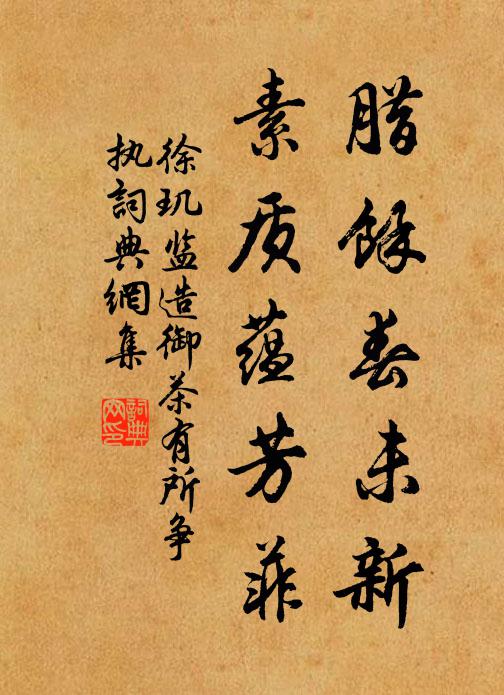 腊馀春未新
素质蕴芳菲
徐玑监造御茶有所争
执詞典網集
詞典网印